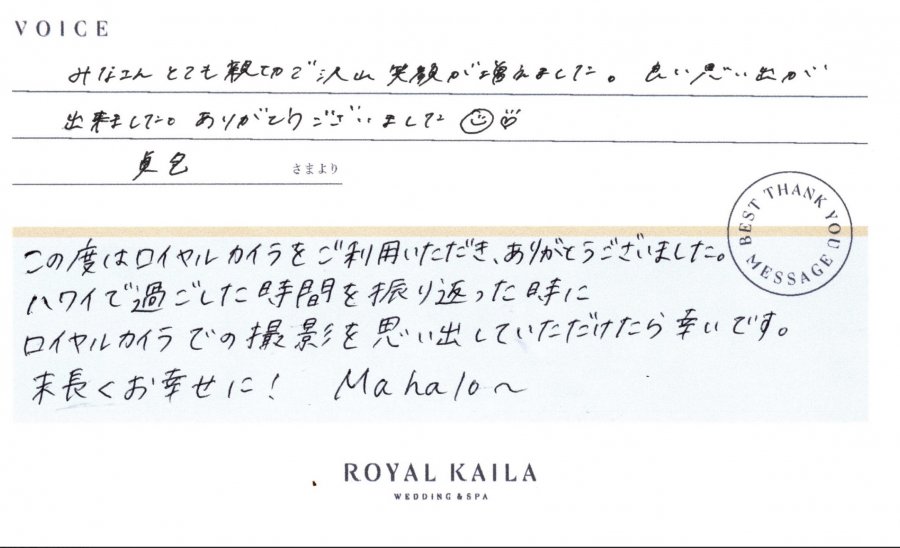 VOICE
みなさん とても親切で沢山 笑顔が増えました。良い思い出が
出来ました。ありがとうございました
さまより
BEST THANK YOU MESSAGE
この度はロイヤルカイラをご利用いただき、ありがとうございました。
ハワイで過ごした時間を振り返った時に
ロイヤルカイラでの撮影を思い出していただけたら幸いです。
末長くお幸せに! Mahalo~
ROYAL KAILA
WEDDING & SPA